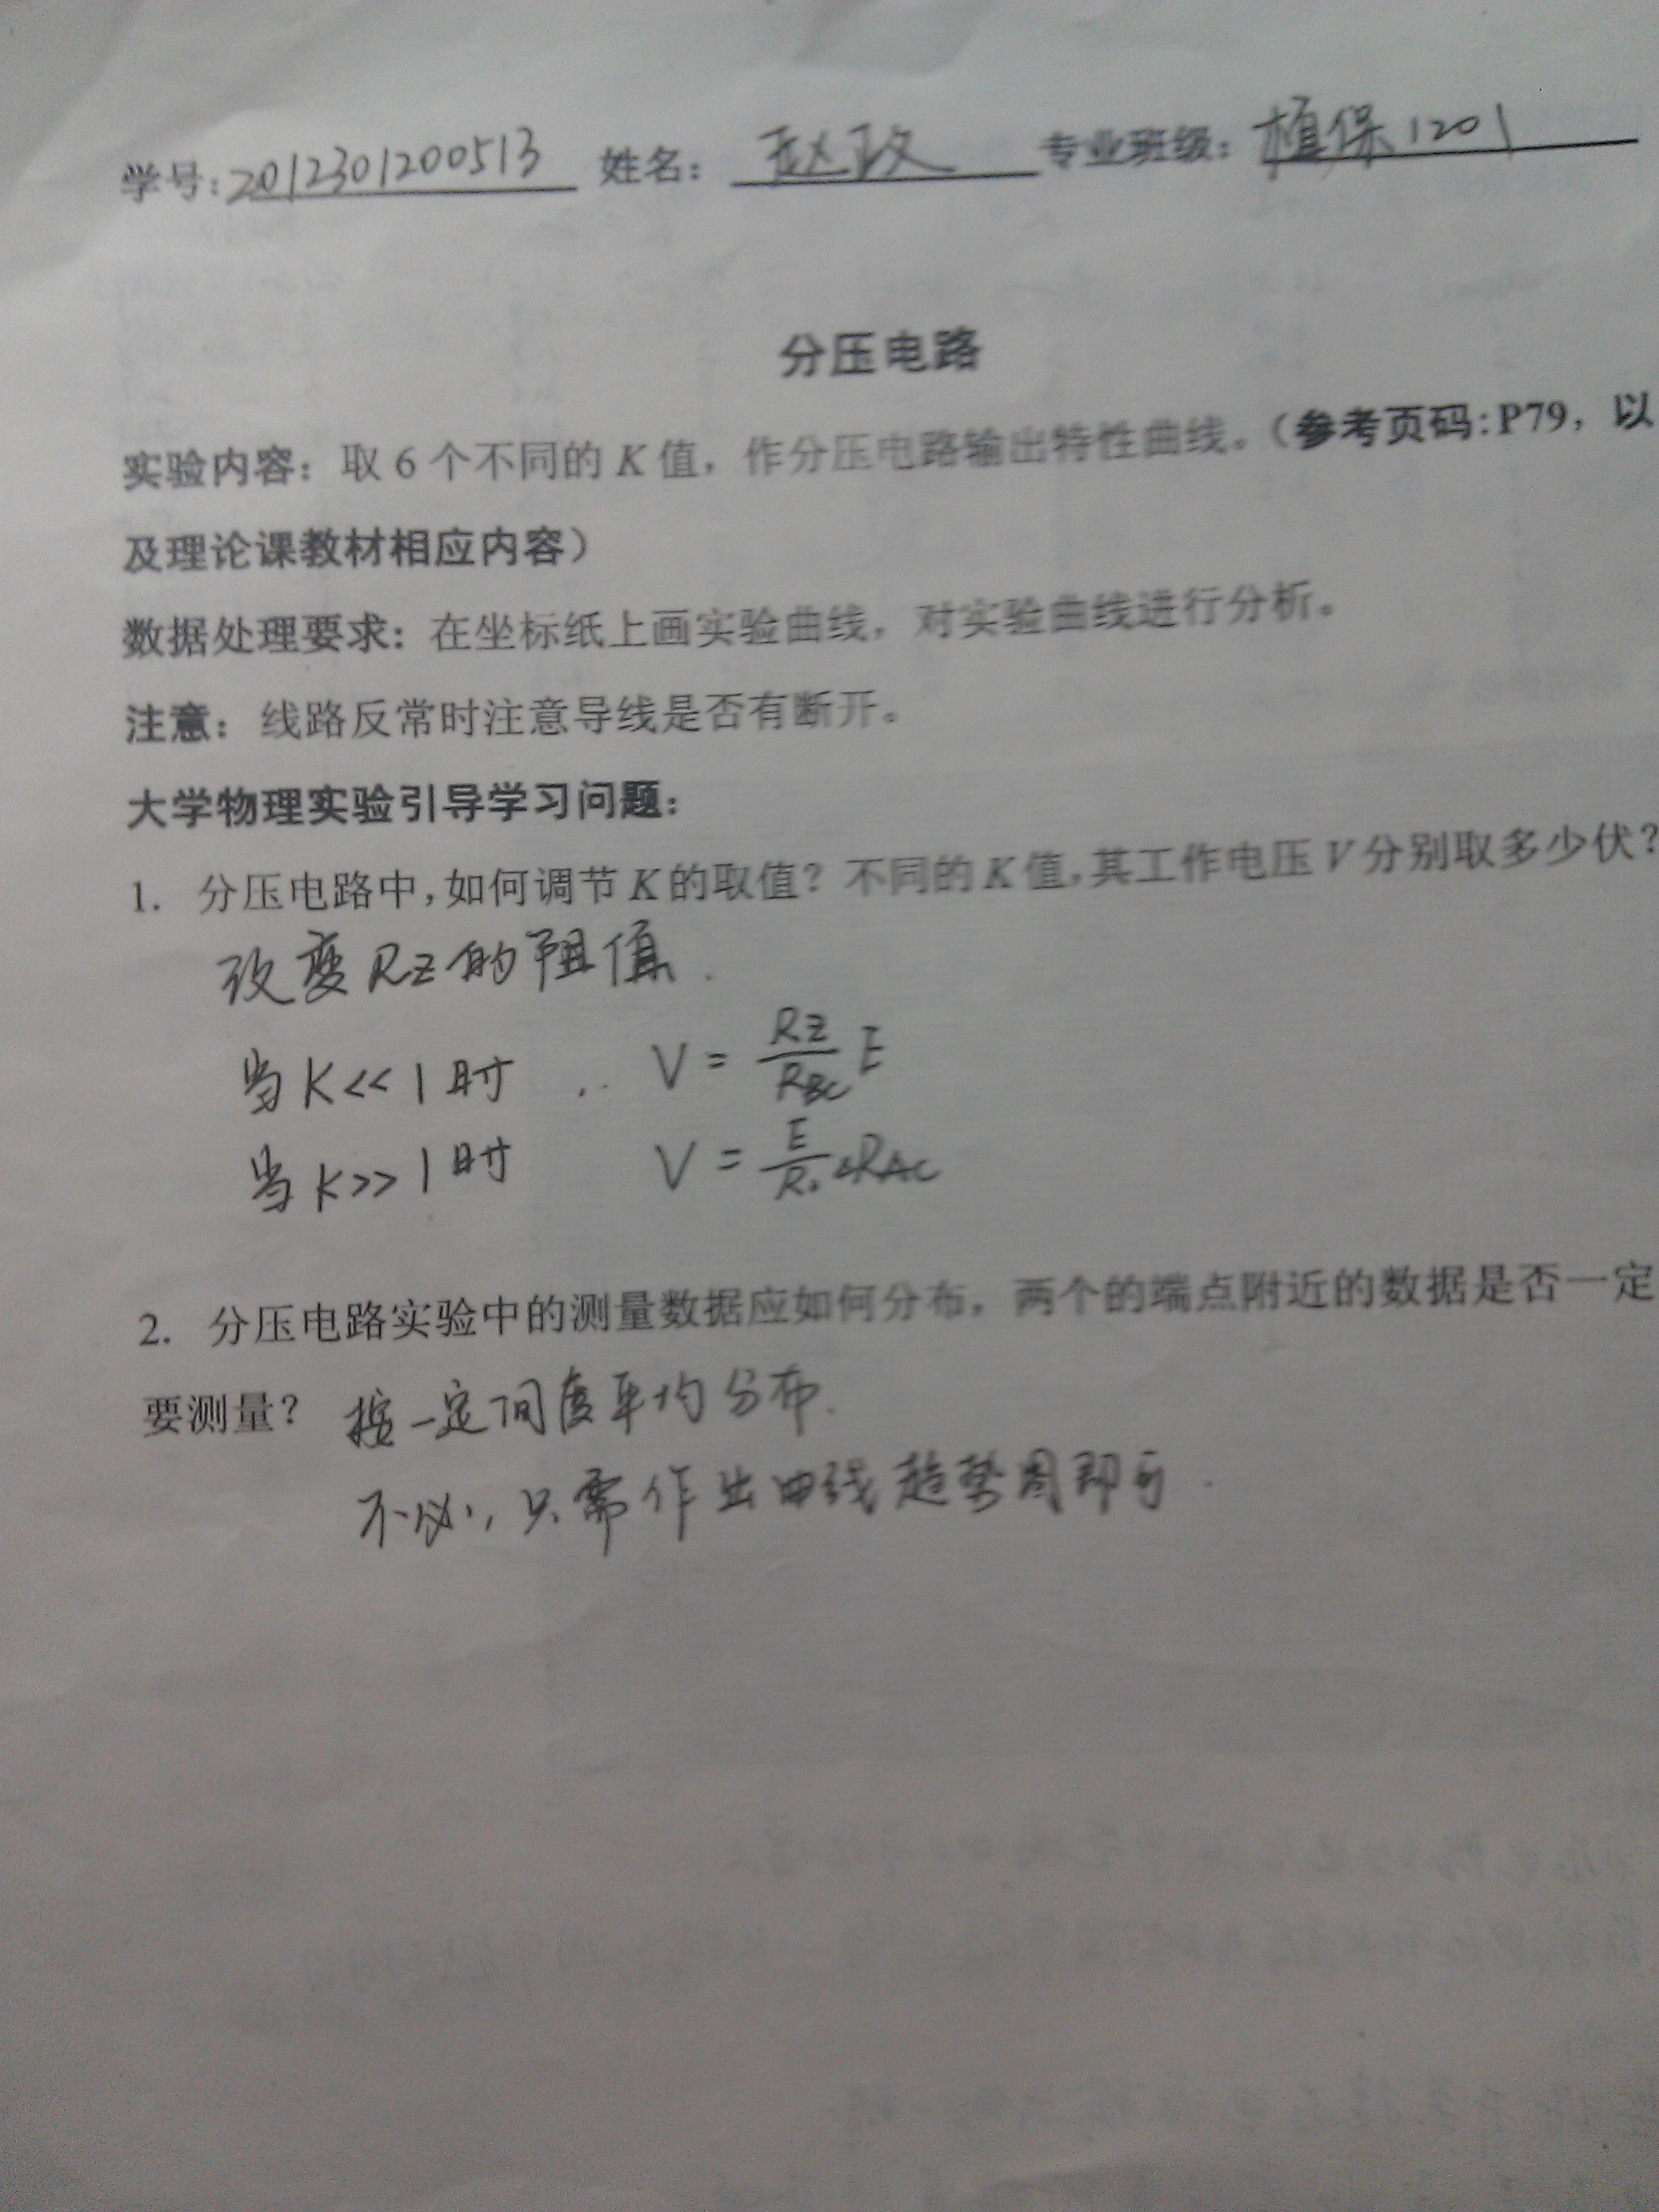 学号:2012301200513 姓名: 赵政 专业班级: 植保1201
分压电路
实验内容: 取 6 个不同的 K 值，作分压电路输出特性曲线。（参考页码:P79，以
及理论课教材相应内容）
数据处理要求: 在坐标纸上画实验曲线，对实验曲线进行分析。
注意: 线路反常时注意导线是否有断开。
大学物理实验引导学习问题:
1. 分压电路中,如何调节 K 的取值？不同的 K 值,其工作电压 V 分别取多少伏？
改变RZ的阻值.
当 K<<1 时 V = RZ/RBC E
当 K>>1 时 V = E/R0 RAC
2. 分压电路实验中的测量数据应如何分布，两个的端点附近的数据是否一定
要测量？ 按一定间度平均分布.
不必, 只需作出曲线趋势图即可.